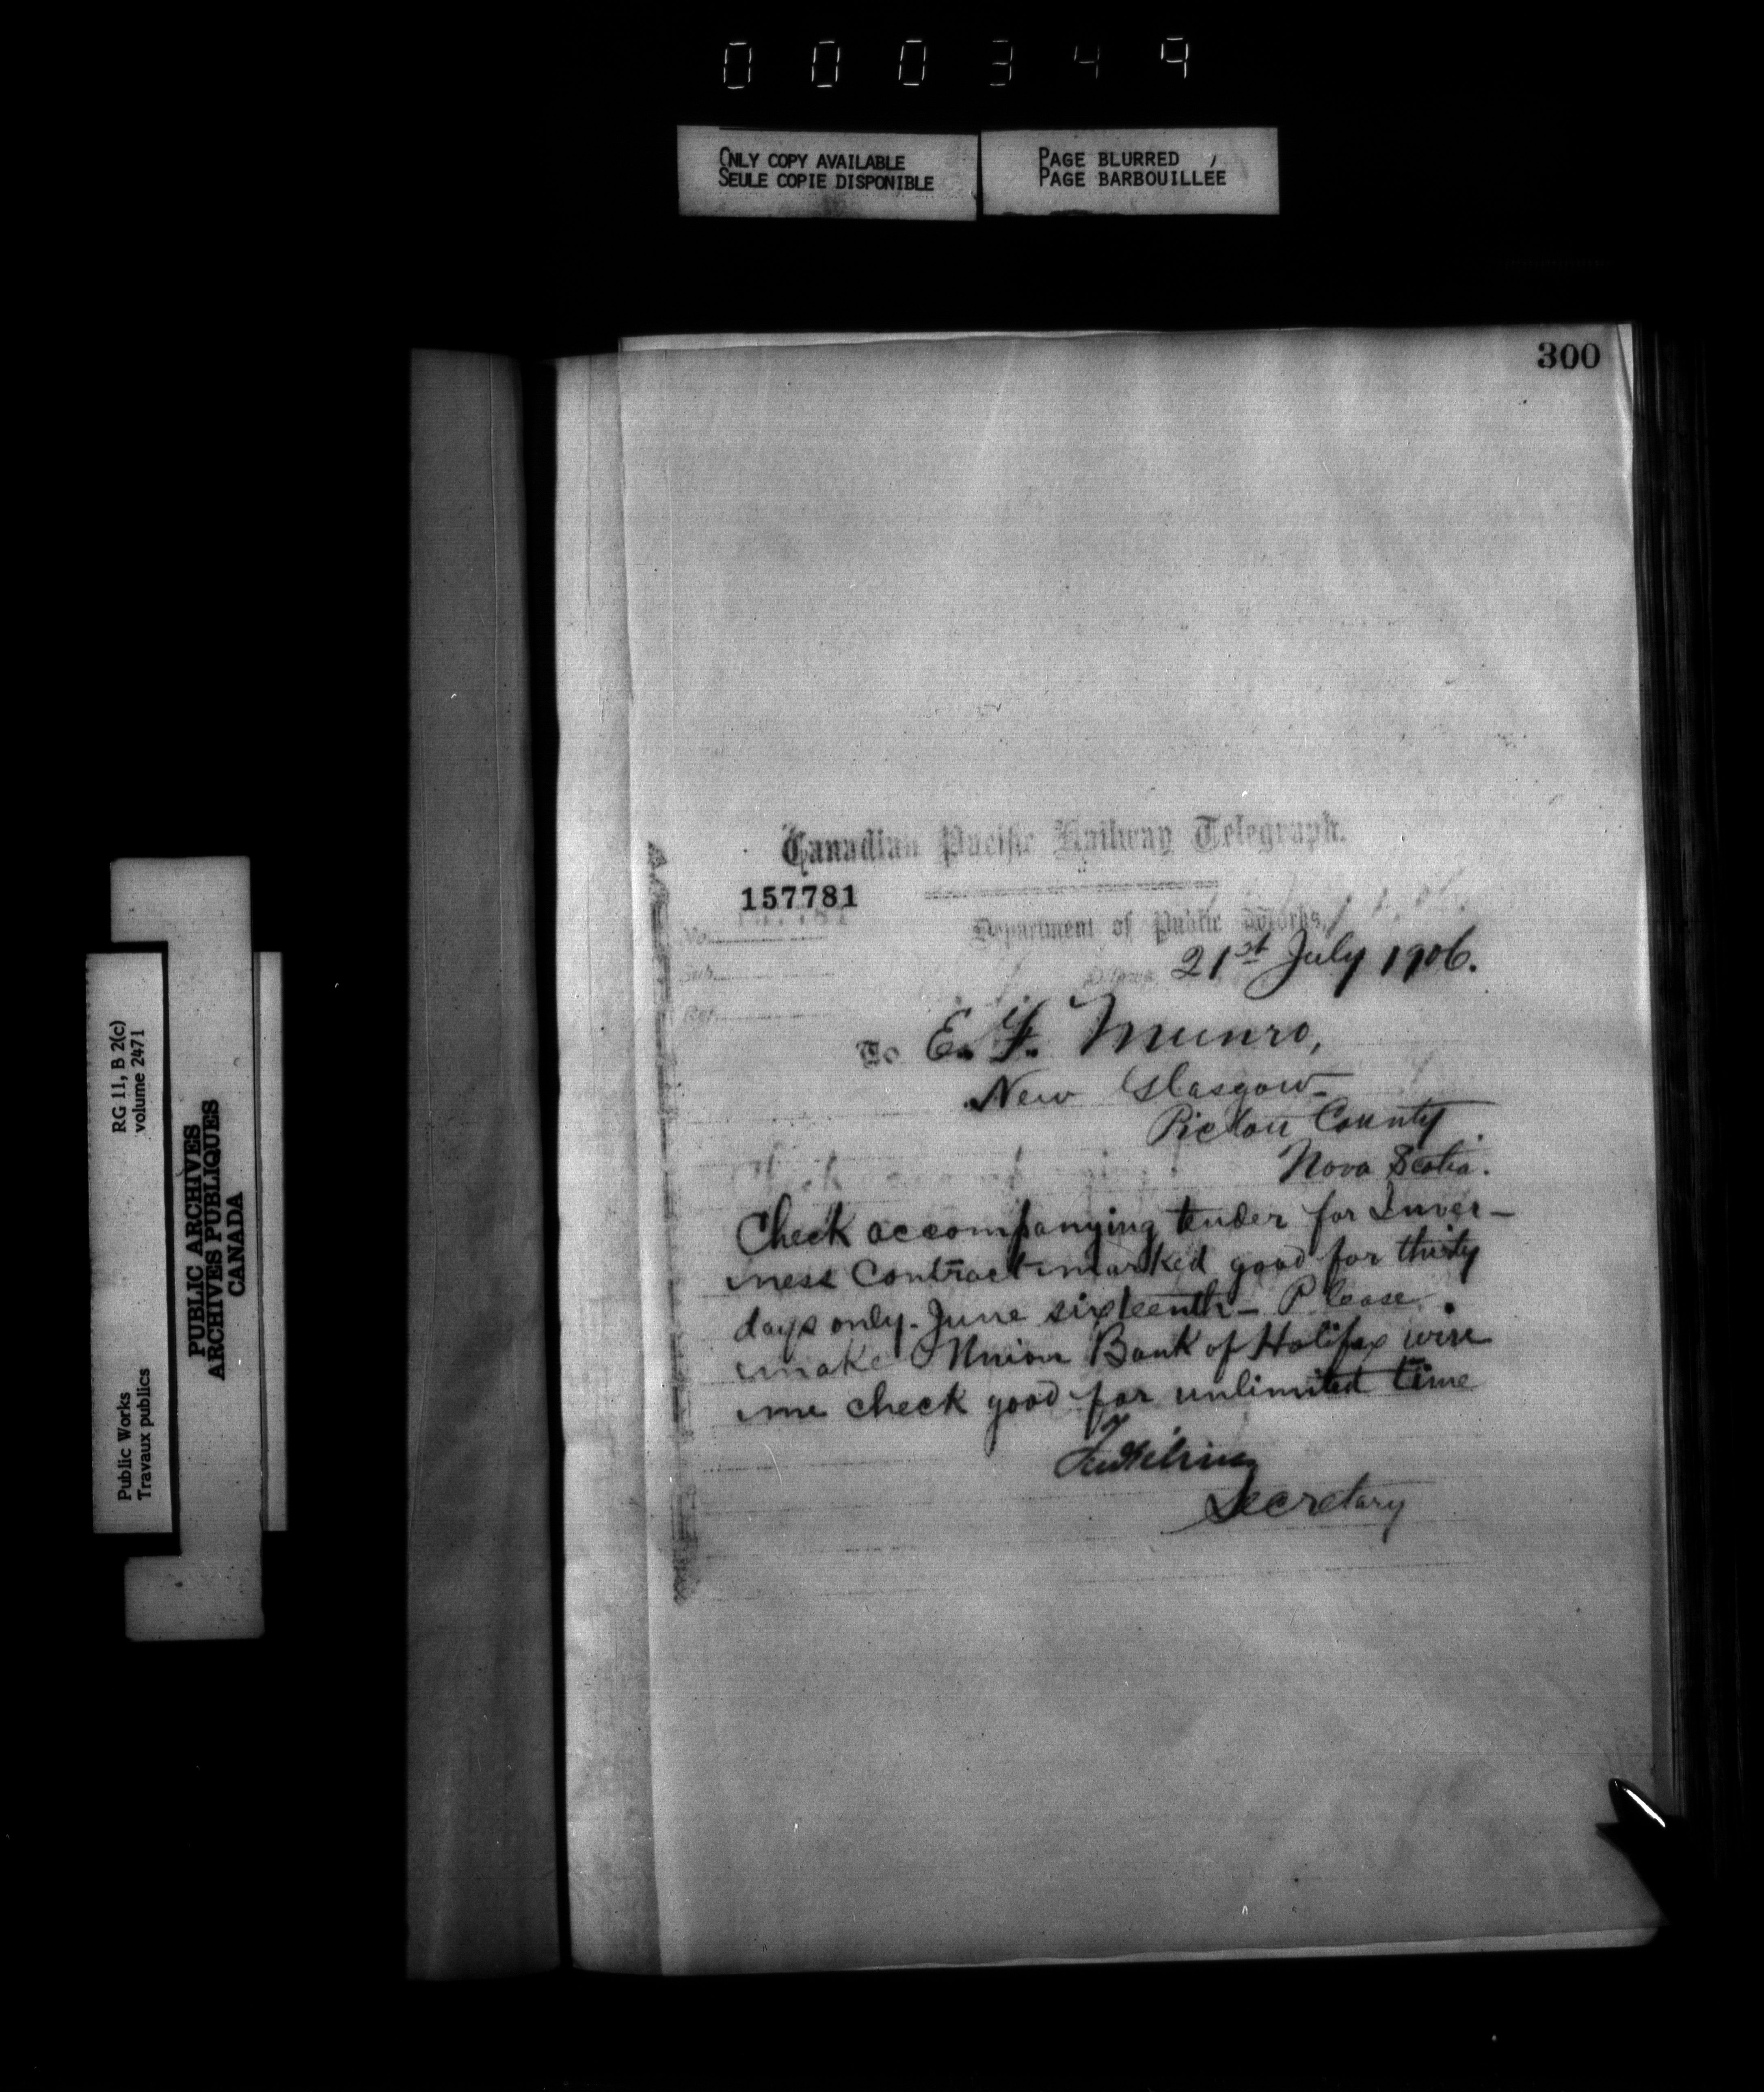 000349
ONLY COPY AVAILABLE
SEULE COPIE DISPONIBLE
PAGE BLURRED
PAGE BARBOUILLÉE
300
Canadian Pacific Railway Telegraph.
157781
No.
Department of Public Works,
Sub.
Ottawa, 21st July 1906.
Ref.
To E. F. Munro,
New Glasgow
Pictou County
Nova Scotia.
Check accompanying tender for Inver-
ness Contract marked good for thirty
days only. June sixteenth - Please
make Union Bank of Halifax wire
me check good for unlimited time
Secretary
RG 11, B 2(c)
volume 2471
Public Works
Travaux publics
PUBLIC ARCHIVES
ARCHIVES PUBLIQUES
CANADA